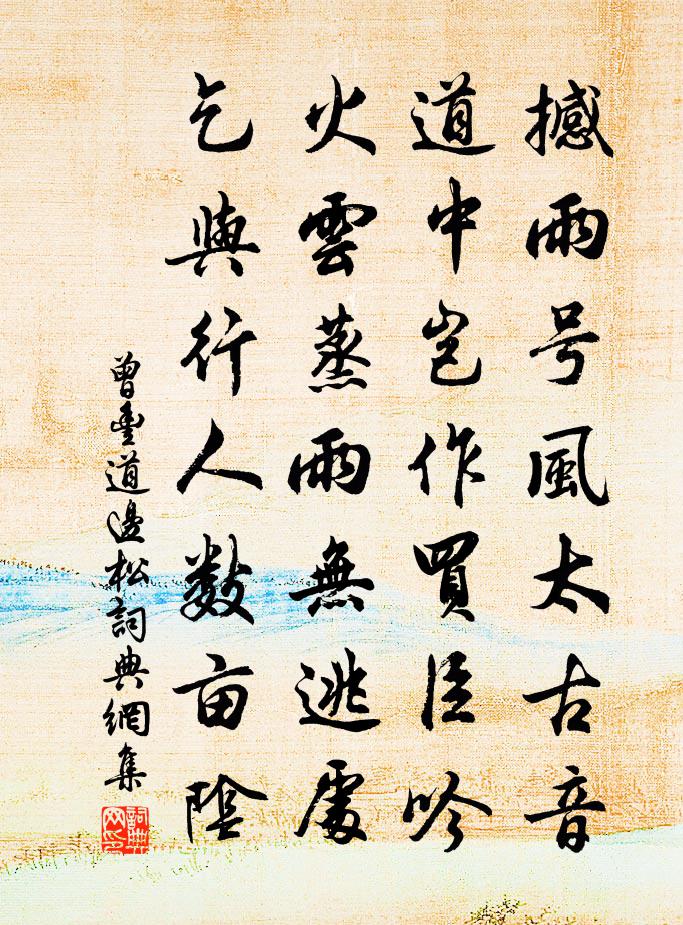 撼雨号風太古音
道中豈作買臣吟
火雲蒸雨無逃處
乞與行人數亩陰
曾豊道邊松詞典網集
詞典
网印